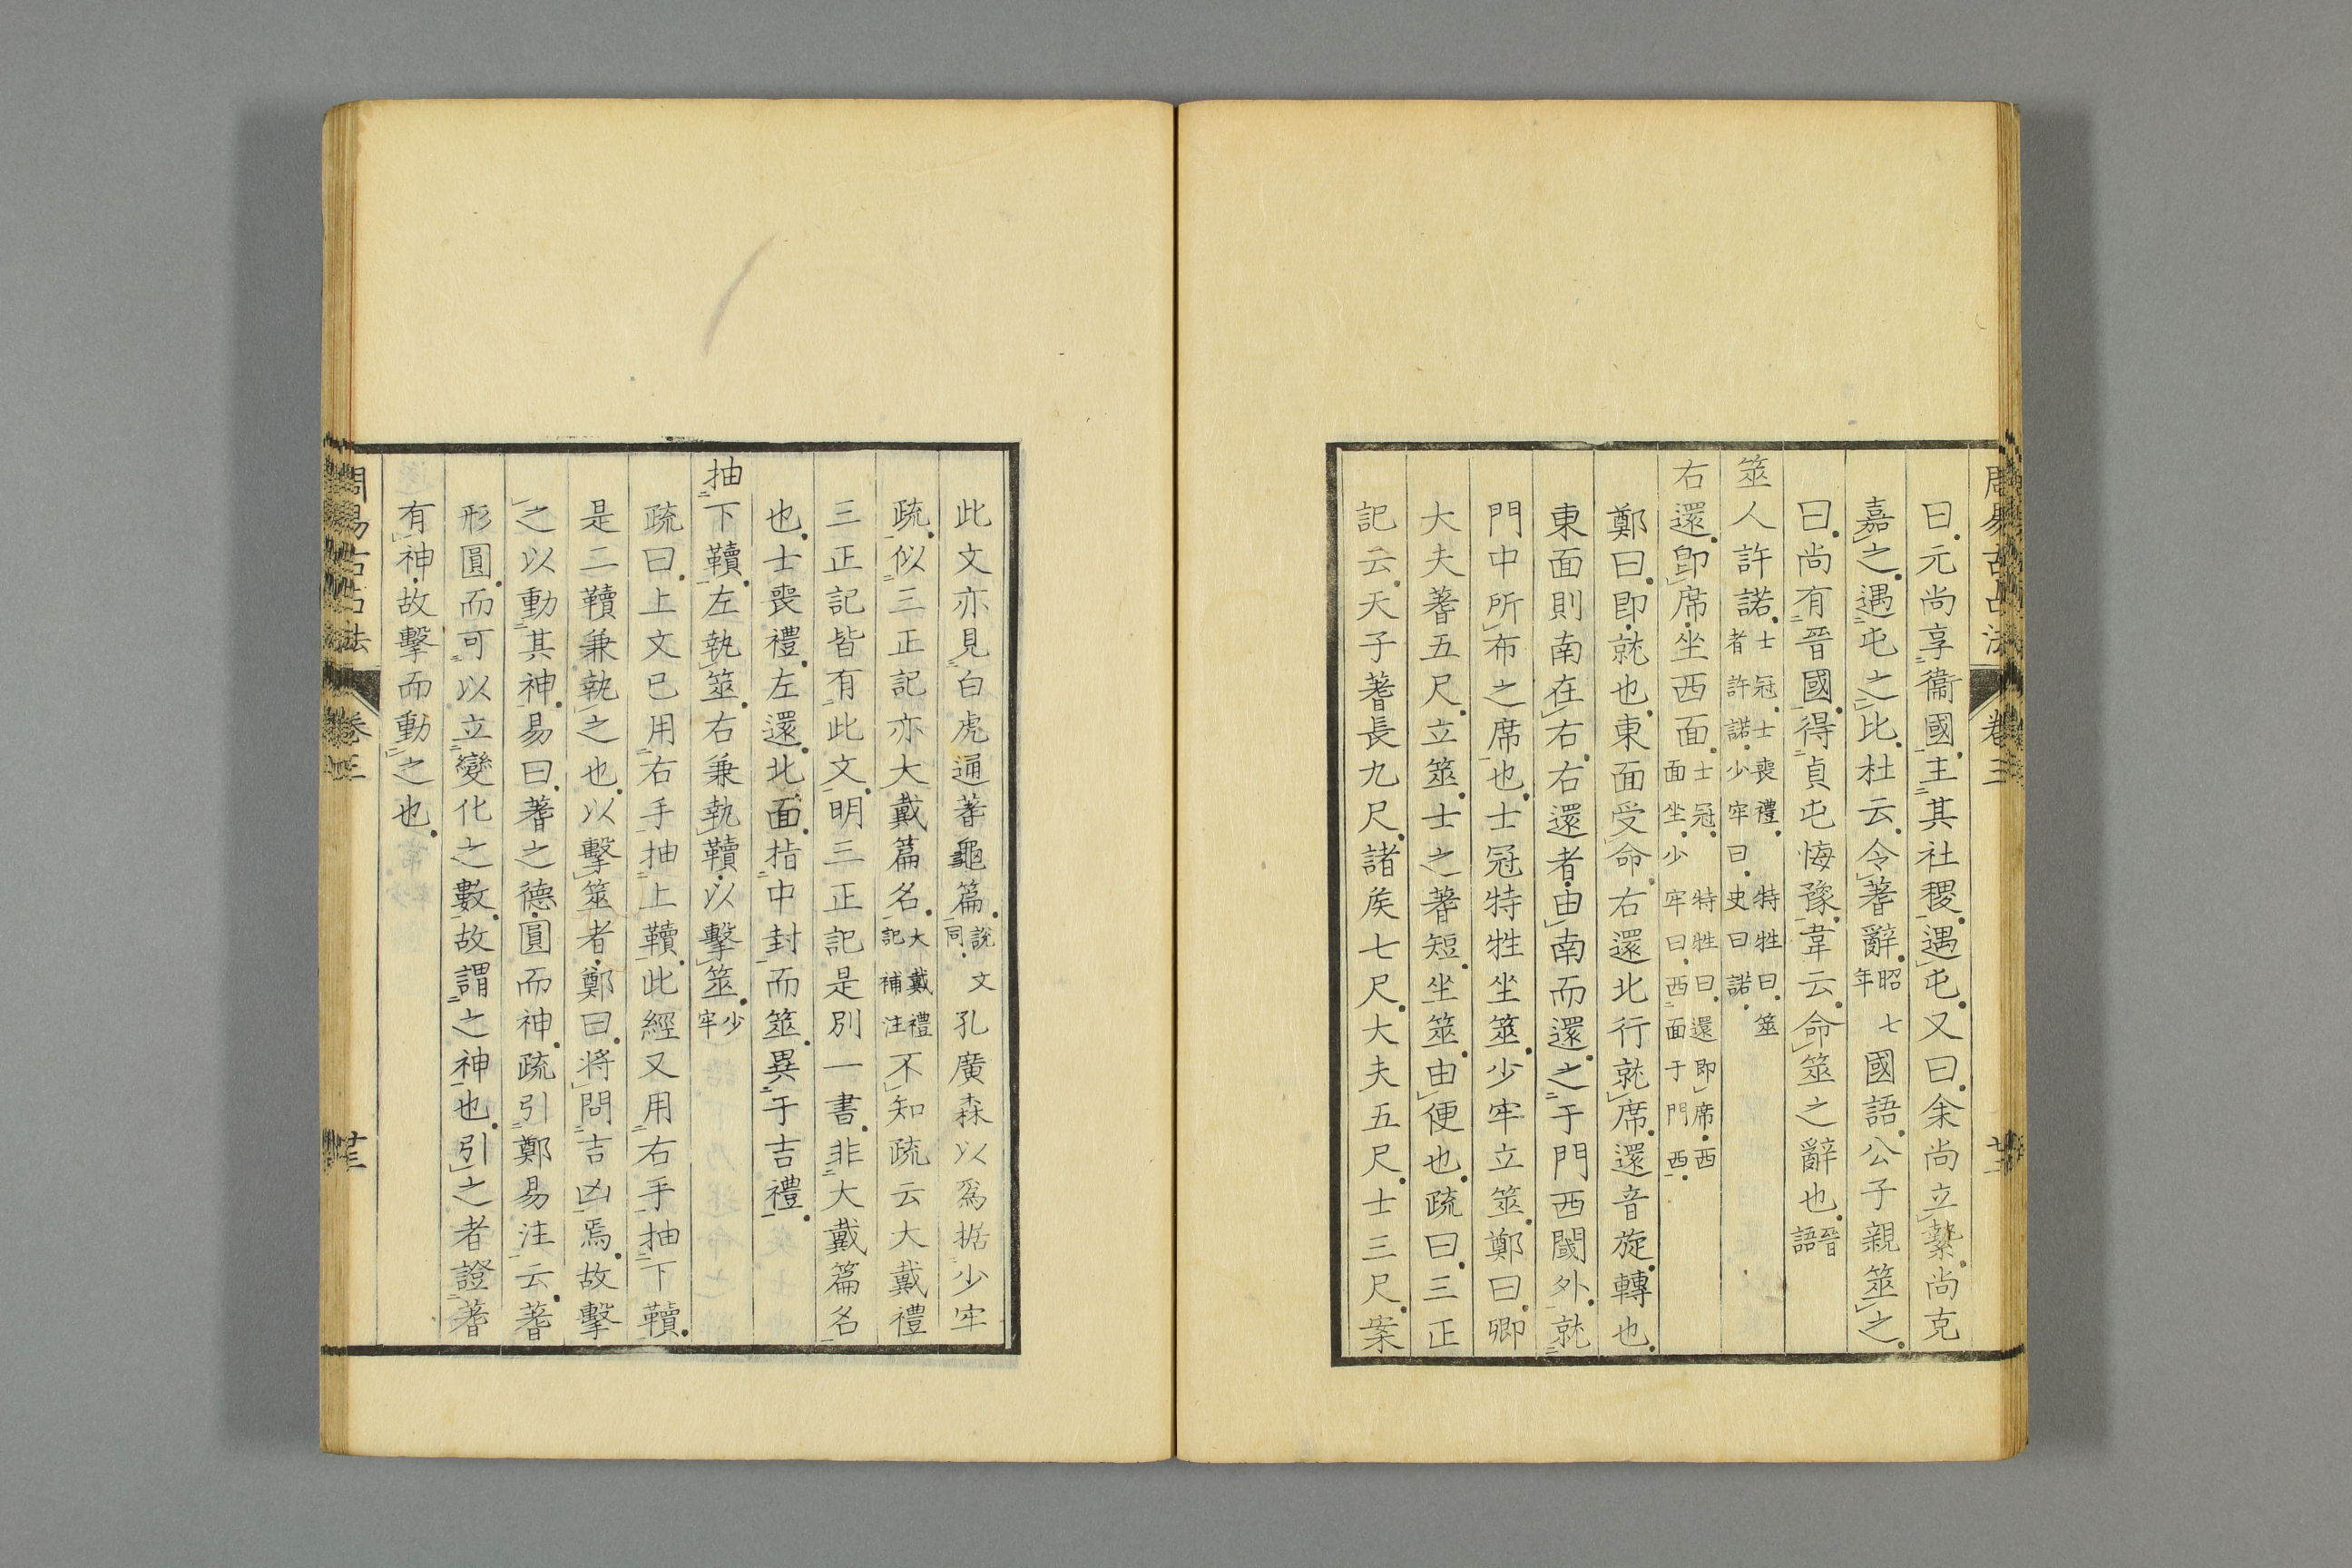 周易古占法 卷三
曰元尚享衞國主其社稷遇屯又曰余尚立縶尚克
嘉之遇屯之比杜云令蓍辭昭七年國語公子親筮之
曰尚有晉國得貞屯悔豫韋云命筮之辭也晉語
筮人許諾士冠士喪禮特牲曰筮者許諾少牢曰史曰諾
右還卽席坐西面士冠特牲曰還卽席西面坐少牢曰西面于門西
鄭曰卽就也東面受命右還北行就席還音旋轉也
東面則南在右右還者由南而還之于門西閾外就
門中所布之席也士冠特牲坐筮少牢立筮鄭曰卿
大夫蓍五尺立筮士之蓍短坐筮由便也疏曰三正
記云天子蓍長九尺諸矦七尺大夫五尺士三尺案
此文亦見白虎通蓍龜篇說文同孔廣森以爲据少牢
疏似三正記亦大戴篇名大戴禮記補注不知疏云大戴禮
三正記皆有此文明三正記是別一書非大戴篇名
也士喪禮左還北面指中封而筮異于吉禮
抽下韇左執筮右兼執韇以擊筮少牢
疏曰上文已用右手抽上韇此經又用右手抽下韇
是二韇兼執之也以擊筮者鄭曰將問吉凶焉故擊
之以動其神易曰蓍之德圓而神疏引鄭易注云蓍
形圓而可以立變化之數故謂之神也引之者證蓍
有神故擊而動之也
周易古占法 卷三